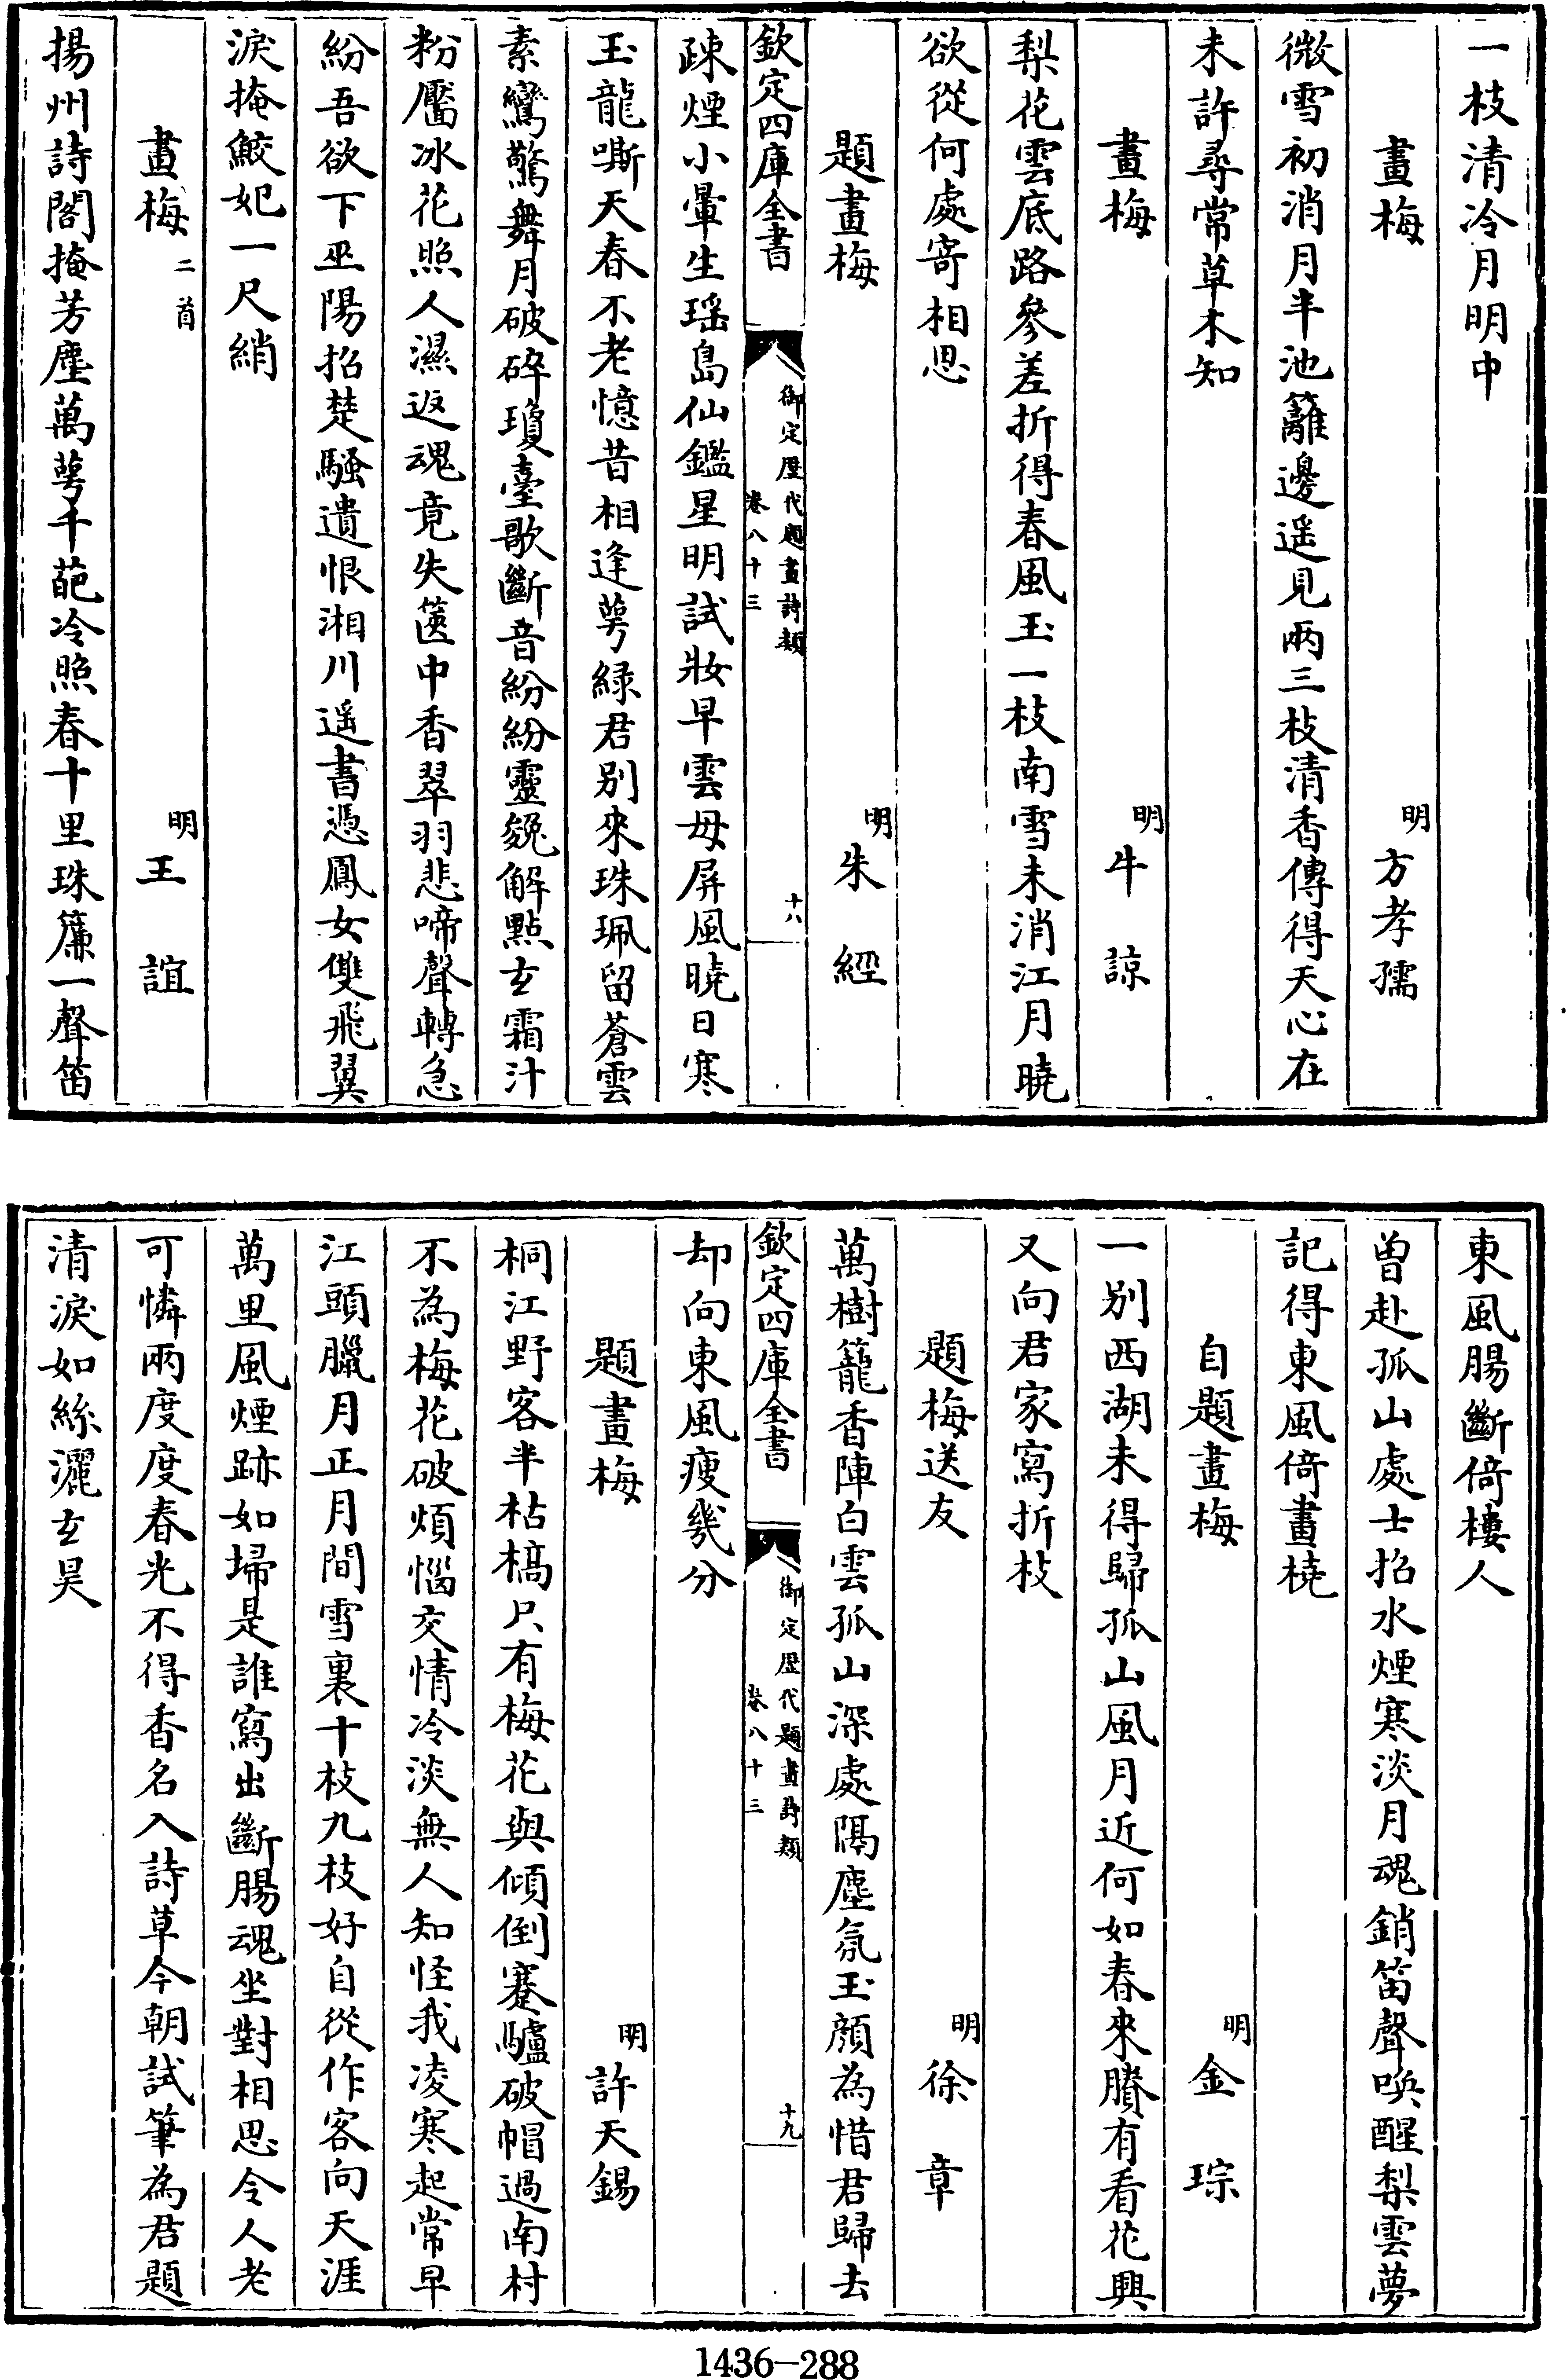 一枝清冷月明中
畫梅 明 方孝孺
微雪初消月半池籬邊遥見兩三枝清香傳得天心在
未許尋常草木知
畫梅 明 牛諒
梨花雲底路參差折得春風玉一枝南雪未消江月曉
欲從何處寄相思
題畫梅 明 朱經
欽定四庫全書 御定歷代題畫詩類 卷八十三 十八
疎煙小暈生瑶島仙鑑星明試妝早雲母屏風曉日寒
玉龍嘶天春不老憶昔相逢萼綠君别來珠珮留蒼雲
素鸞驚舞月破碎瓊臺歌斷音紛紛靈䨲解點玄霜汁
粉靨冰花照人濕返魂竟失篋中香翠羽悲啼聲轉急
紛吾欲下巫陽招楚騷遺恨湘川遥書憑鳳女雙飛翼
淚掩鮫妃一尺綃
畫梅 二首 明 王誼
揚州詩閣掩芳塵萬萼千葩冷照春十里珠簾一聲笛
東風腸斷倚樓人
曾赴孤山處士招水煙寒淡月魂銷笛聲喚醒梨雲夢
記得東風倚畫橈
自題畫梅 明 金琮
一别西湖未得歸孤山風月近何如春來賸有看花興
又向君家寫折枝
題梅送友 明 徐章
萬樹籠香陣白雲孤山深處隔塵氛玉顔為惜君歸去
欽定四庫全書 御定歷代題畫詩類 卷八十三 十九
却向東風瘦幾分
題畫梅 明 許天錫
桐江野客半枯槁只有梅花與傾倒蹇驢破帽過南村
不為梅花破煩惱交情冷淡無人知怪我凌寒起常早
江頭臘月正月間雪裏十枝九枝好自從作客向天涯
萬里風煙跡如埽是誰寫出斷腸魂坐對相思令人老
可憐兩度度春光不得香名入詩草今朝試筆為君題
清淚如絲灑玄昊
1436-288